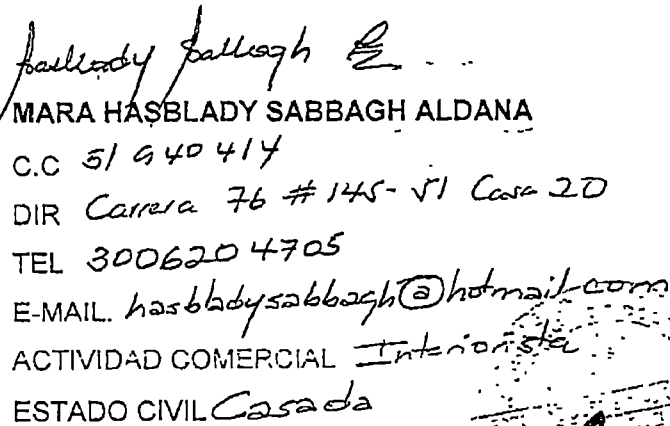 Hasblady Sabbagh
MARA HASBLADY SABBAGH ALDANA
C.C 51 940 414
DIR Carrera 76 # 145-51 Casa 20
TEL 3006204705
E-MAIL. hasbladysabbagh@hotmail.com
ACTIVIDAD COMERCIAL Interiorista
ESTADO CIVIL Casada